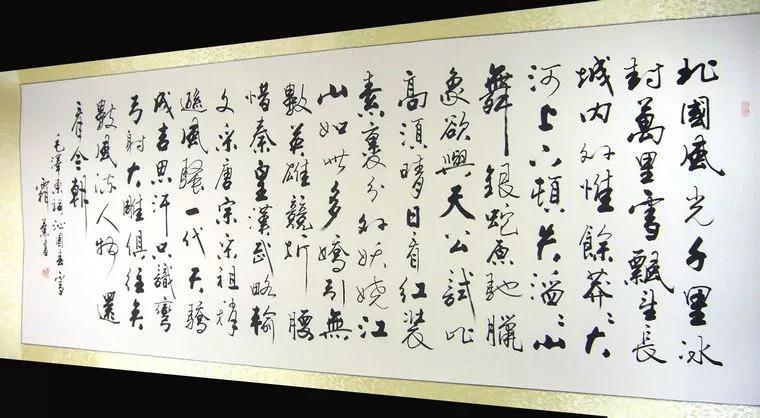 北國風光千里冰
封萬里雪飄望長
城内外惟餘莽〻大
河上下頓失滔〻山
舞銀蛇原馳臘
象欲與天公試比
高須晴日看紅裝
素裹分外妖嬈江
山如此多嬌引無
數英雄競折腰
惜秦皇漢武略輸
文采唐宗宋祖稍
遜風騷一代天驕
成吉思汗只識彎
弓射大雕俱往矣
數風流人物還
看今朝
毛澤東詞沁園春雪
霜